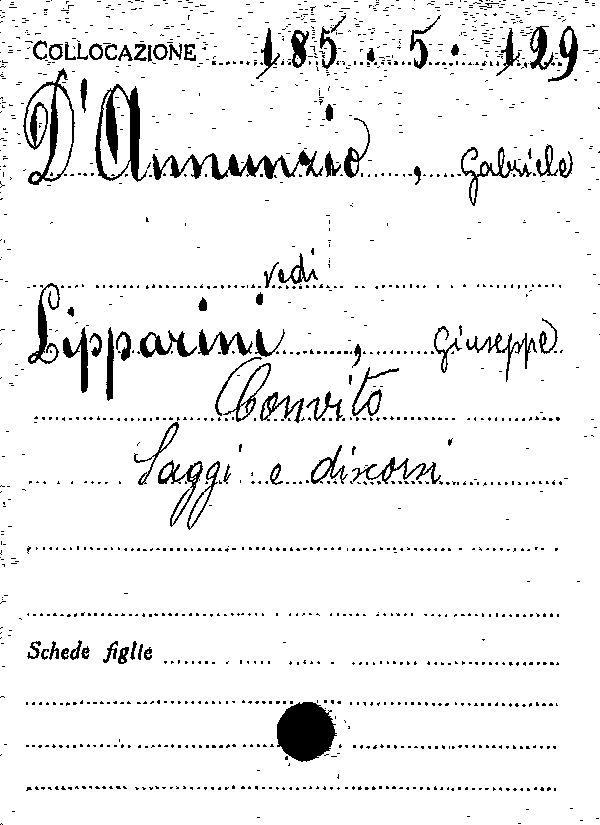 COLLOCAZIONE 185.5.129
D'Annunzio, Gabriele
vedi
Lipparini, Giuseppe
Convito
Saggi e discorsi
Schede figlie